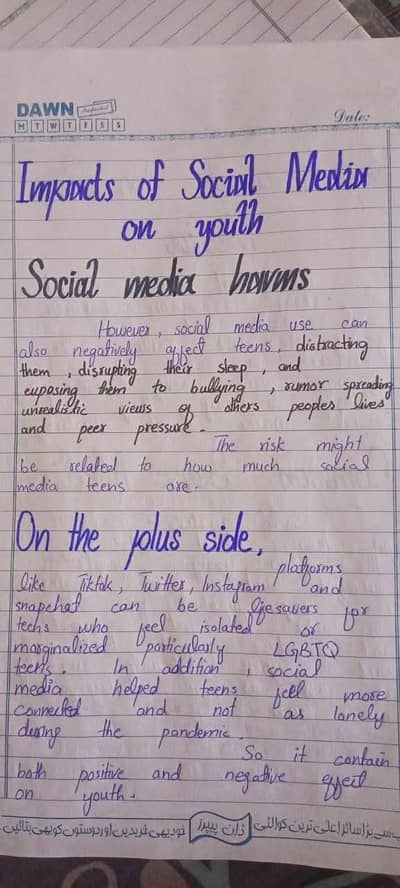 DAWN
M T W T F S S
Date:
Impacts of Social Media
on youth
Social media harms
However, social media use can
also negatively affect teens, distracting
them, disrupting their sleep, and
exposing them to bullying, rumor spreading
unrealistic views of others peoples lives
and peer pressure.
The risk might
be related to how much social
media teens are.
On the plus side,
platforms
like Tiktok, Twitter, Instagram and
snapchat can be lifesavers for
techs who feel isolated or
marginalized particularly LGBTQ
teens. In addition, social
media helped teens feel more
connected and not as lonely
during the pandemic.
So it contain
both positive and negative effect
on youth.
سب سے بڑا سائز اعلیٰ ترین کوالٹی
ڈان پیپرز
خود بھی خریدیں اور دوستوں کو بھی بتائیں